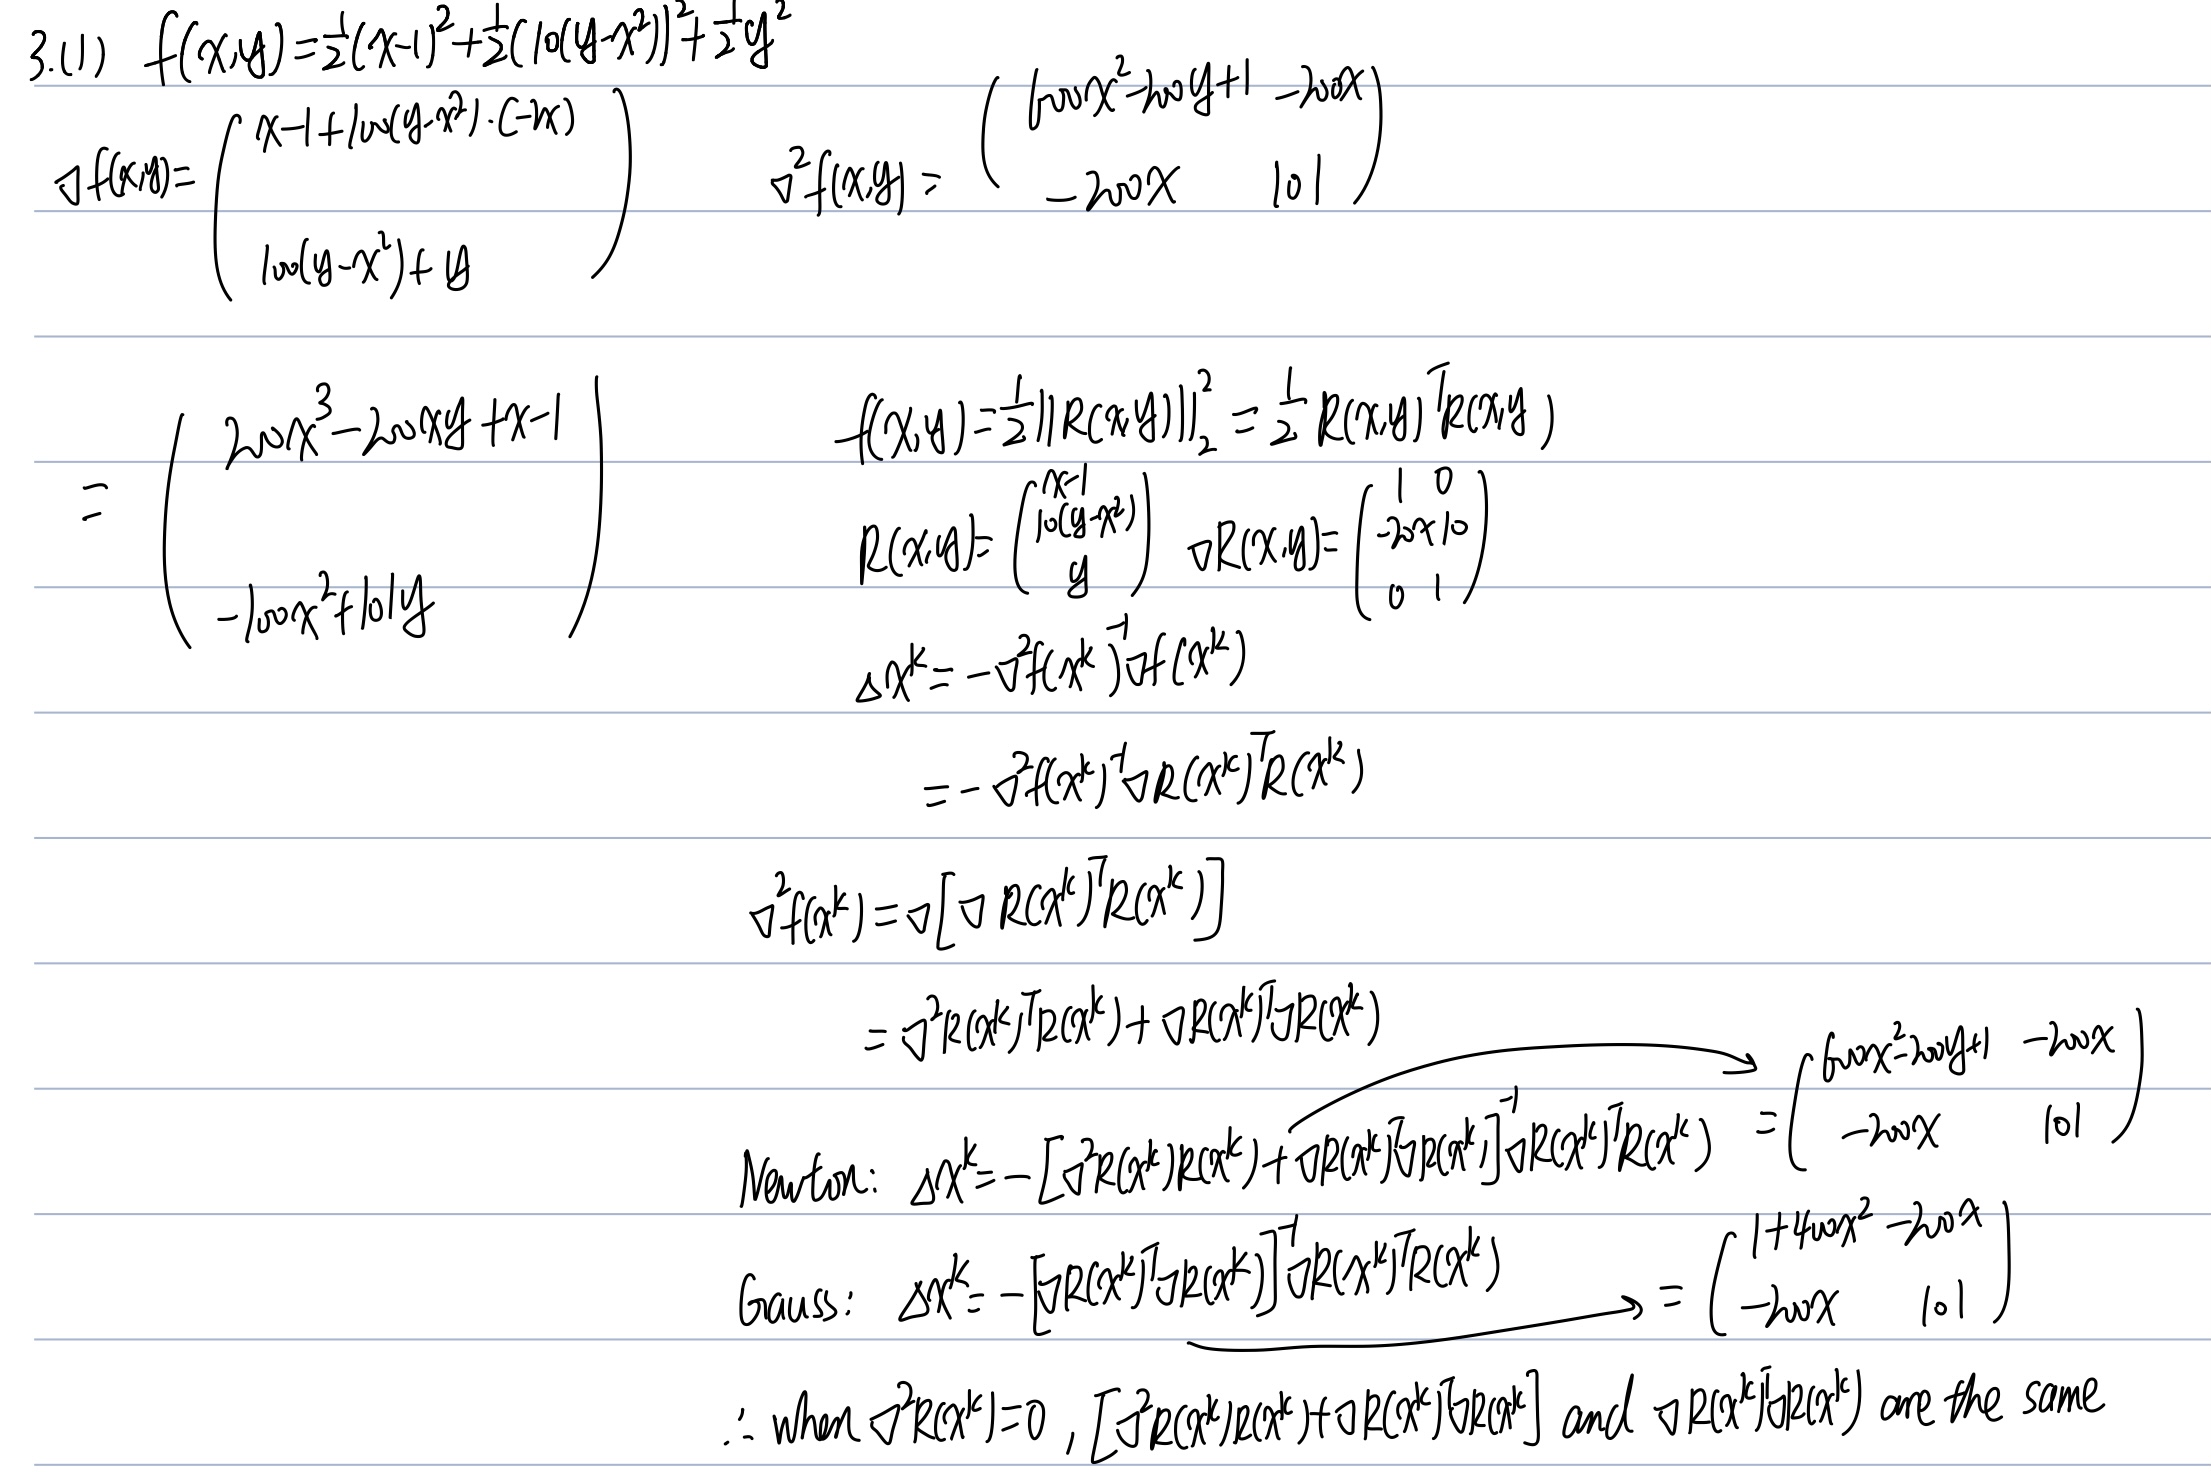 3.(1) f(x,y)=½(x-1)²+½(10(y-x²))²+½y²
∇f(x,y)= ( x-1+100(y-x²)·(-2x)
100(y-x²)+y )
∇²f(x,y) = ( 600x²-200y+1 -200x
-200x 101 )
= ( 200x³-200xy+x-1
-100x²+101y )
f(x,y)=½||R(x,y)||₂² = ½ R(x,y)ᵀR(x,y)
R(x,y)= ( x-1
10(y-x²)
y )
∇R(x,y)= ( 1 0
-20x 10
0 1 )
Δxᵏ = -∇²f(xᵏ)⁻¹∇f(xᵏ)
= -∇²f(xᵏ)⁻¹∇R(xᵏ)ᵀR(xᵏ)
∇²f(xᵏ) = ∇[∇R(xᵏ)ᵀR(xᵏ)]
= ∇²R(xᵏ)ᵀR(xᵏ)+∇R(xᵏ)ᵀ∇R(xᵏ)
Newton: Δxᵏ = -[∇²R(xᵏ)R(xᵏ)+∇R(xᵏ)ᵀ∇R(xᵏ)]⁻¹∇R(xᵏ)ᵀR(xᵏ)
= ( 600x²-200y+1 -200x
-200x 101 )
Gauss: Δxᵏ = -[∇R(xᵏ)ᵀ∇R(xᵏ)]⁻¹∇R(xᵏ)ᵀR(xᵏ)
= ( 1+400x² -200x
-200x 101 )
∴ when ∇²R(xᵏ)=0, [∇²R(xᵏ)R(xᵏ)+∇R(xᵏ)ᵀ∇R(xᵏ] and ∇R(xᵏ)ᵀ∇R(xᵏ) are the same